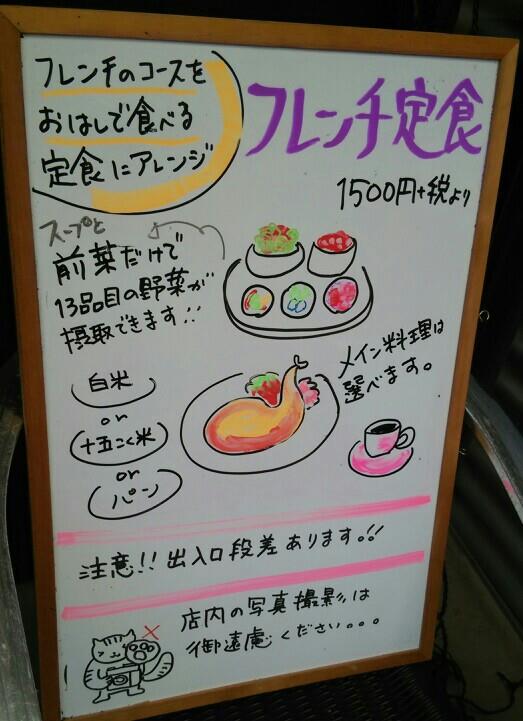 フレンチのコースを
おはしで食べる
定食にアレンジ
フレンチ定食
1500円+税より
スープと
前菜だけで
13品目の野菜が
摂取できます!!
メイン料理は
選べます。
白米
or
十五こく米
or
パン
注意!! 出入口段差あります。!!
店内の写真撮影は
御遠慮ください。。。